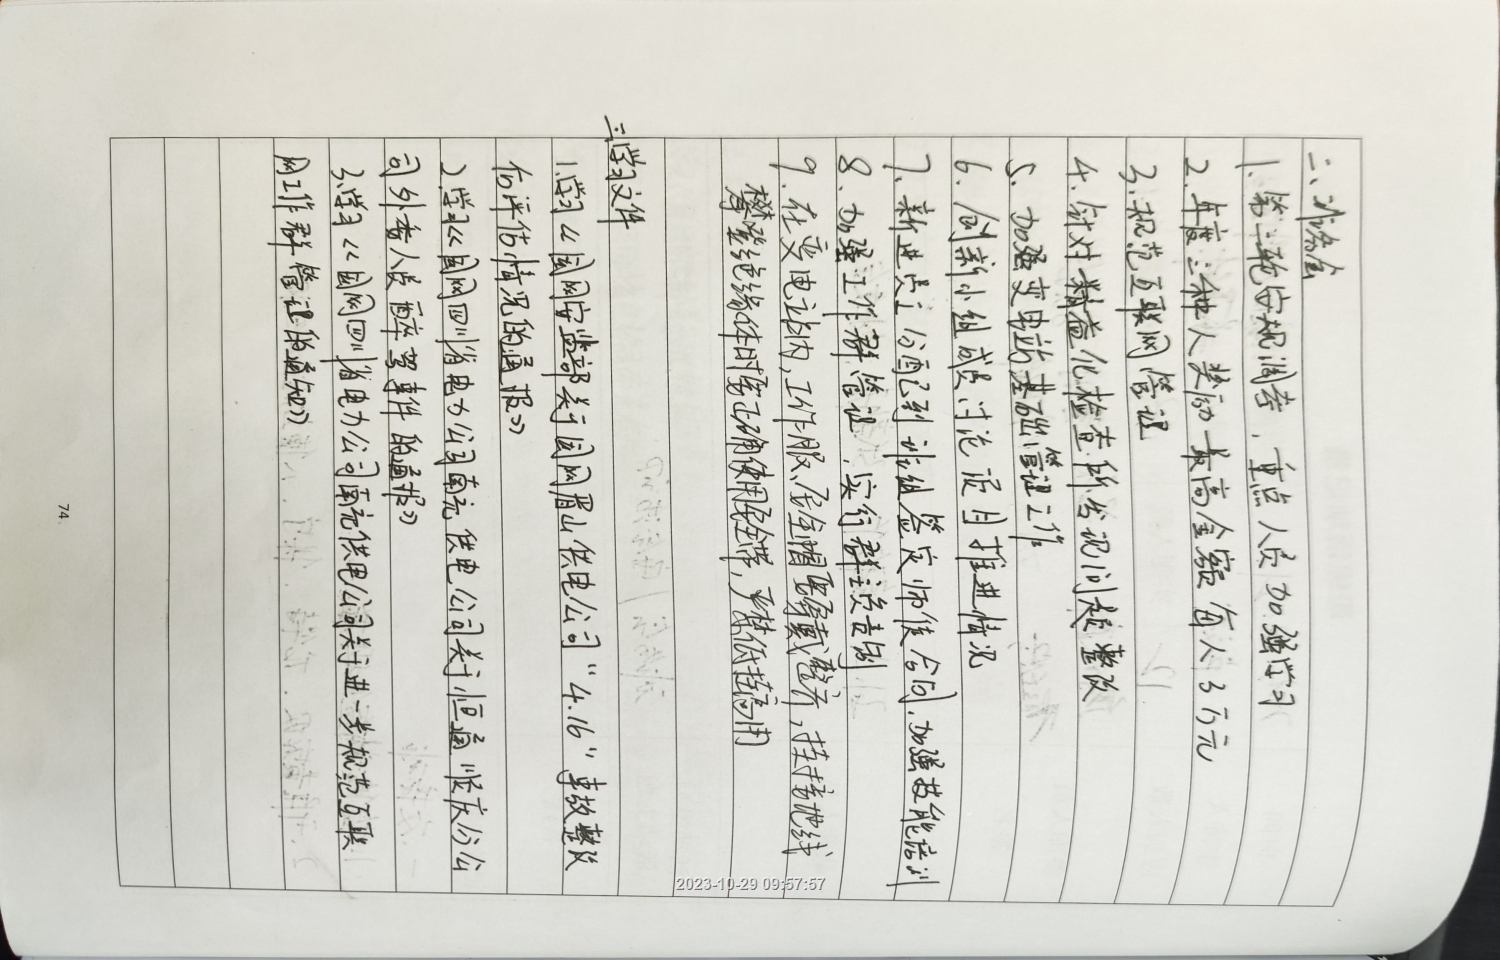 二、班务会
1. 第二轮安规调考，重点人员加强学习
2. 年度三种人奖励最高金额每人3万元
3. 规范互联网管理
4. 针对精益化检查所发现问题整改
5. 加强变电站基础管理工作
6. 创新小组成员讨论项目推进情况
7. 新进员工分配到班组签定师徒合同，加强技能培训
8. 加强工作群管理，实行群主负责制
9. 在变电站内，工作服、安全帽要穿戴整齐，挂接地线
攀登绝缘体时要正确使用安全带，严禁低挂高用
三、学习文件
1. 学习《国网安监部关于国网眉山供电公司“4.16”事故整改
后评估情况的通报》
2. 学习《国网四川省电力公司南充供电公司关于恒通顺庆分公
司外委人员醉驾事件的通报》
3. 学习《国网四川省电力公司南充供电公司关于进一步规范互联
网工作群管理的通知》
74
2023-10-29 09:57:57